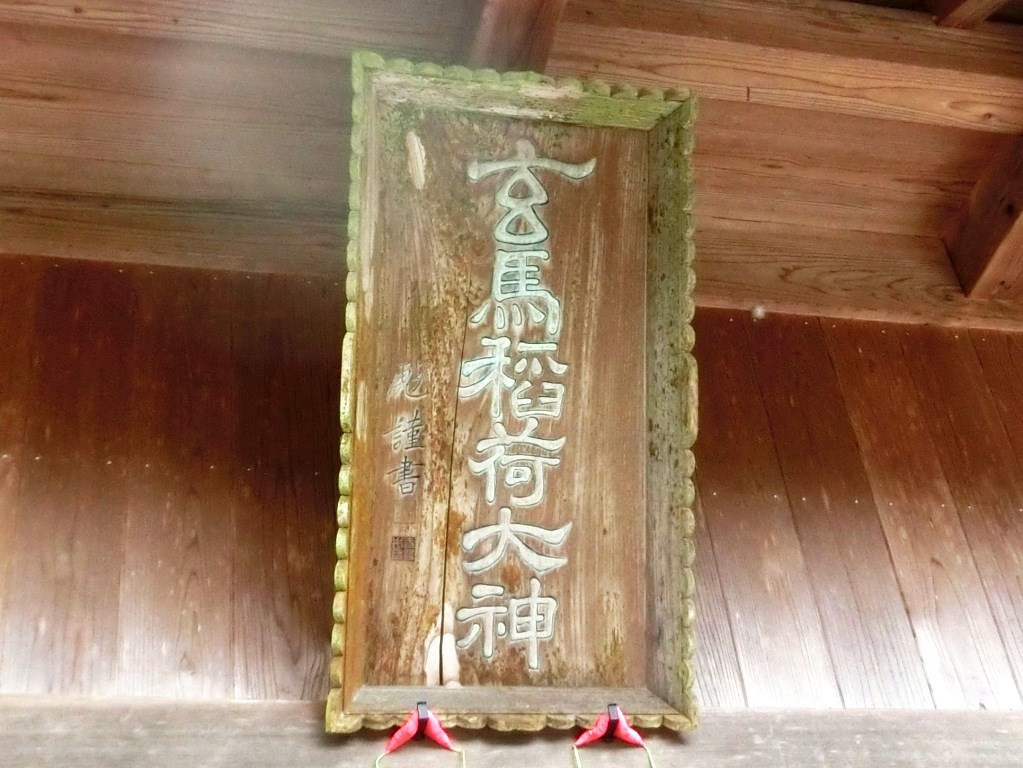 玄馬稲荷大神
謹書